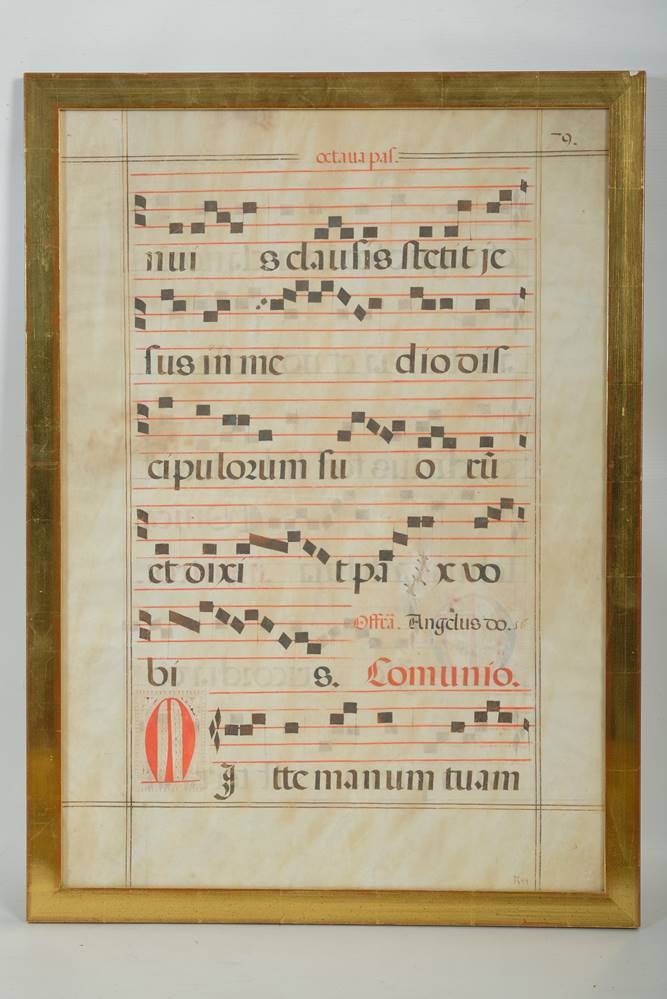 octaua pas.
79.
nui s clausis stetit je
sus in me dio dis
cipulorum su o rū
et dixi t pa x vo
Offrā. Angelus do. 56
bi s. Comunio.
M
J tte manum tuam